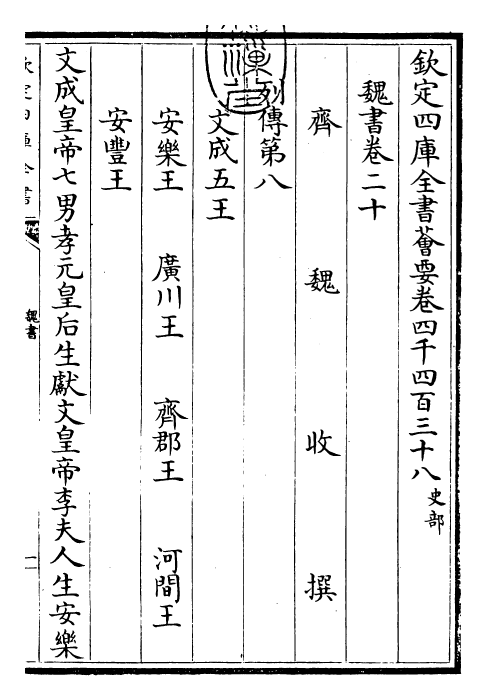 欽定四庫全書薈要卷四千四百三十八 史部
魏書卷二十
齊 魏 收 撰
列傳第八
文成五王
安樂王 廣川王 齊郡王 河間王
安豐王
文成皇帝七男孝元皇后生獻文皇帝李夫人生安樂
魏書
一